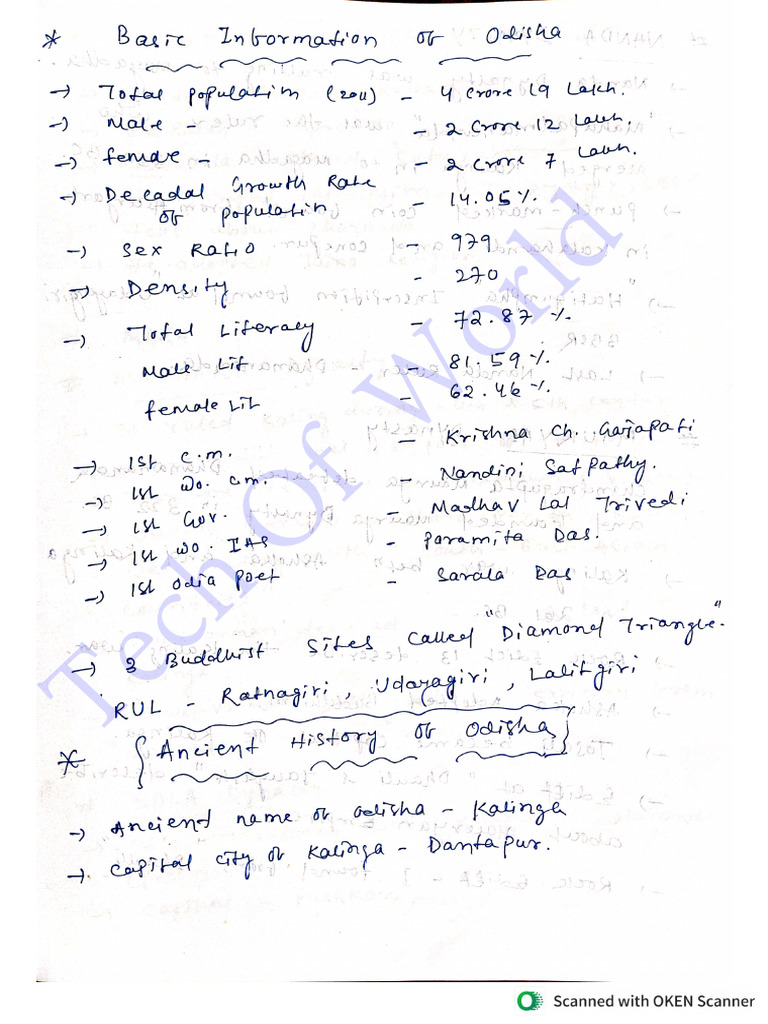 * Basic Information of Odisha
→ Total population (2011) - 4 crore 19 Lakh.
→ Male - - 2 crore 12 Lakh.
→ female - - 2 crore 7 Lakh.
→ Decadal Growth Rate
of population - 14.05%.
→ Sex Ratio - 979
→ Density - 270
→ Total Literacy - 72.87 %.
Male Lit - 81.59 %.
female Lit - 62.46 %.
→ 1st C.M. - Krishna Ch. Gajapati
→ 1st Wo. C.M. - Nandini Satpathy.
→ 1st Gov. - Madhav Lal Trivedi
→ 1st Wo. IAS - Paramita Das.
→ 1st Odia Poet - Sarala Das
→ 3 Buddhist Sites Called "Diamond Triangle."
RUL - Ratnagiri, Udayagiri, Lalitgiri
* {Ancient History of Odisha}
→ Ancient name of odisha - Kalinga
→ Capital city of Kalinga - Dantapur.
Tech Of World
Scanned with OKEN Scanner